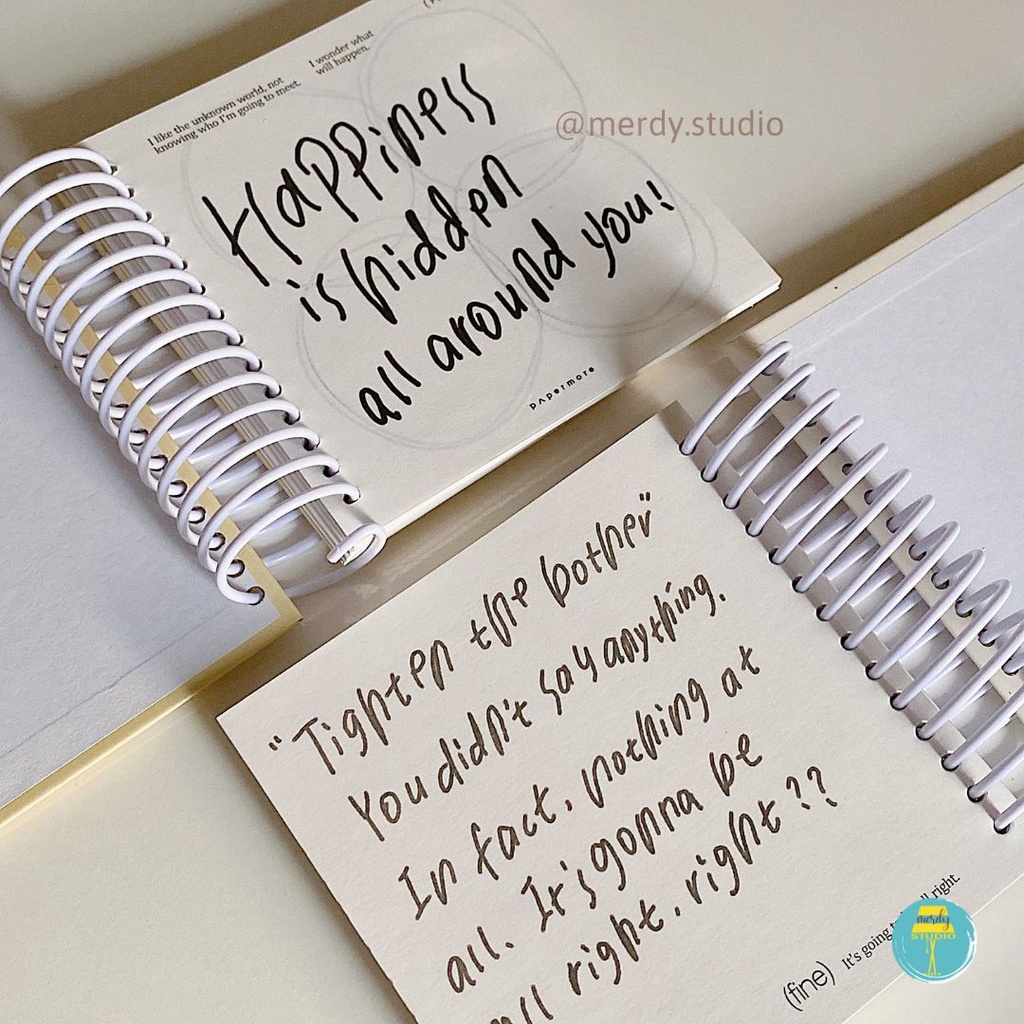 I like the unknown world, not
knowing who I'm going to meet.
I wonder what
will happen.
Happiness
is hidden
all around you!
papermore
@merdy.studio
"Tighten the bother"
You didn't say anything.
In fact, nothing at
all. It's gonna be
all right, right??
(fine)
It's going to right.
merdy
STUDIO